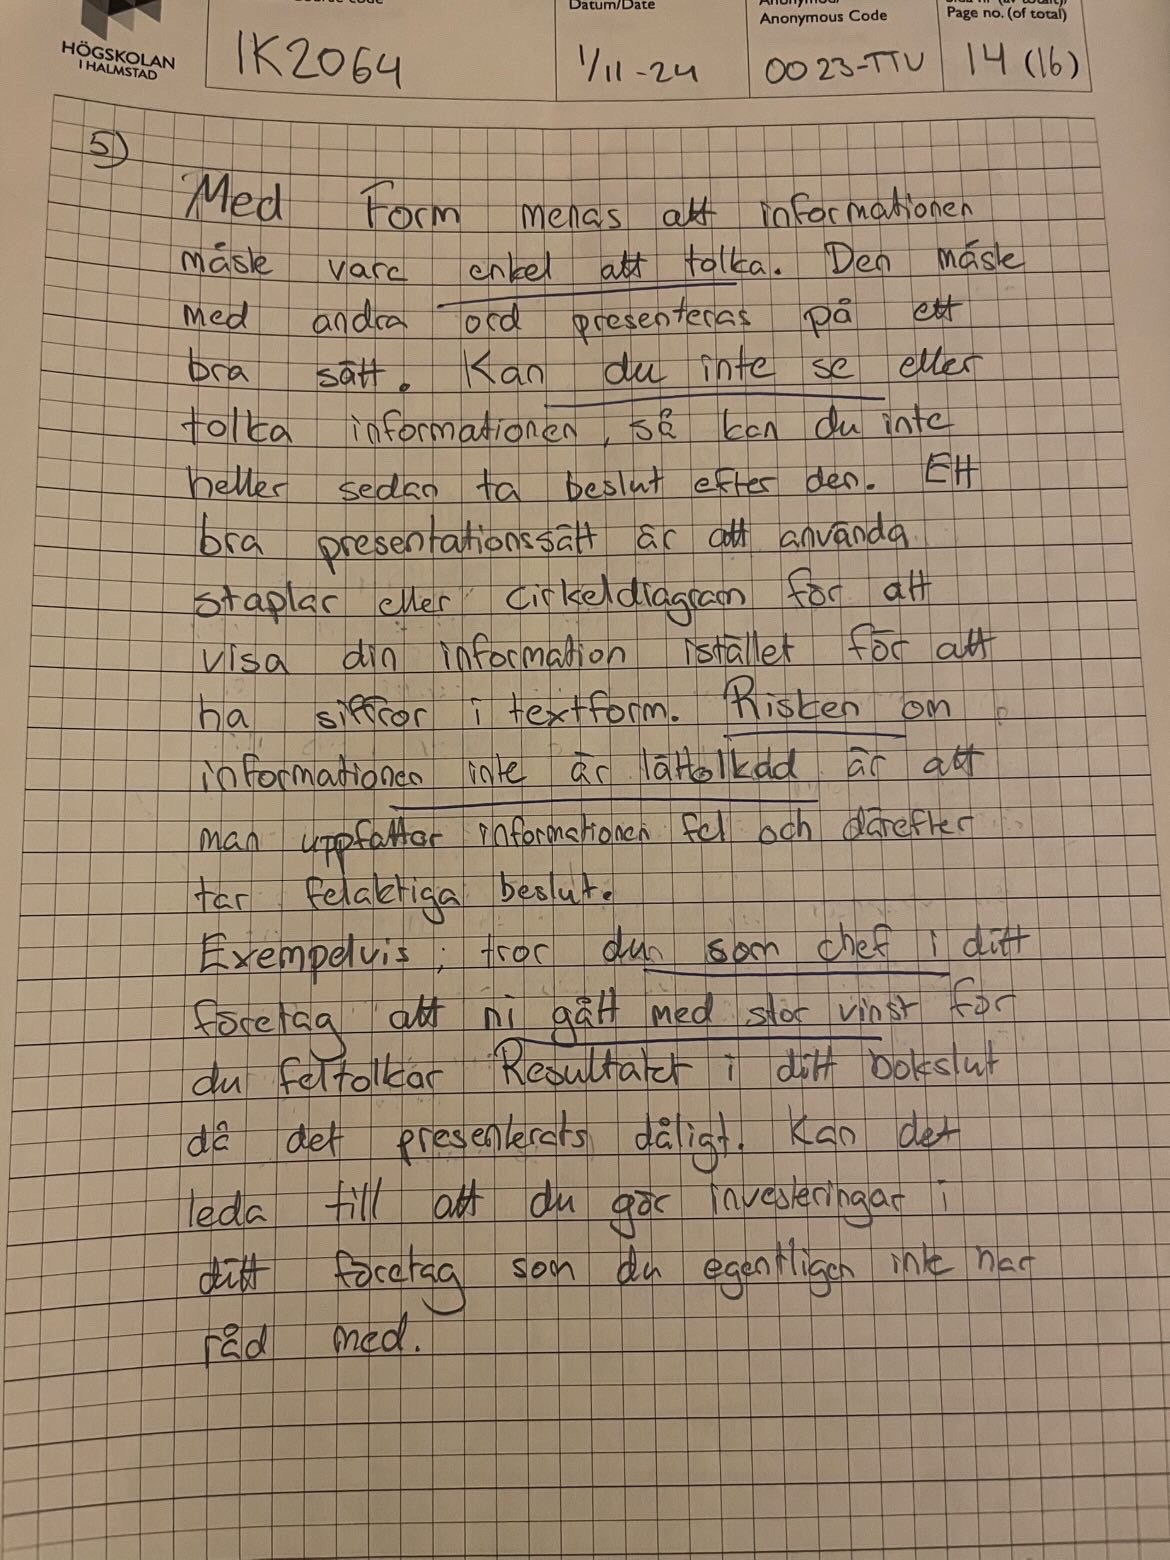 HÖGSKOLAN
I HALMSTAD
Datum/Date
Anonymous Code
Page no. (of total)
IK2064
1/11-24
0023-TTU
14 (16)
5)
Med Form menas att informationen
måste vara enkel att tolka. Den måste
med andra ord presenteras på ett
bra sätt. Kan du inte se eller
tolka informationen, så kan du inte
heller sedan ta beslut efter den. Ett
bra presentationssätt är att använda
staplar eller cirkeldiagram för att
visa din information istället för att
ha siffror i textform. Risken om
informationen inte är lättolkad är att
man uppfattar informationen fel och därefter
tar felaktiga beslut.
Exempelvis; tror du som chef i ditt
företag att ni gått med stor vinst för
du feltolkar Resultatet i ditt bokslut
då det presenterats dåligt. Kan det
leda till att du gör investeringar i
ditt företag som du egentligen inte har
råd med.